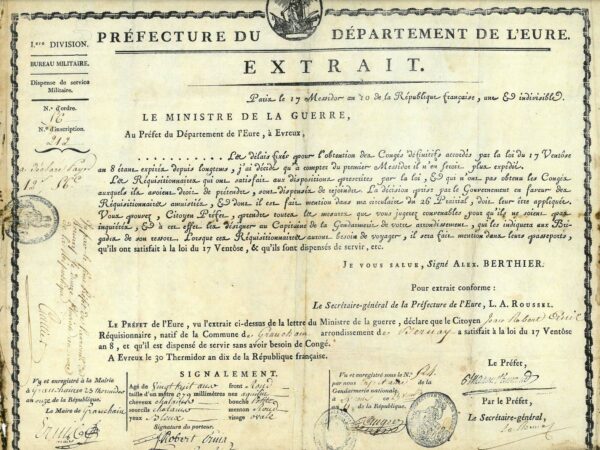 PRÉFECTURE DU DÉPARTEMENT DE L'EURE.
EXTRAIT.
I.ere DIVISION.
BUREAU MILITAIRE.
Dispense de service
Militaire.
N.o d'ordre.
N.o d'inscription.
212
Paris le 17 Messidor an 10 de la République française, une & indivisible.
LE MINISTRE DE LA GUERRE,
Au Préfet du Département de l'Eure, à Évreux,
Les délais fixés pour l'obtention des Congés définitifs accordés par la loi du 17 Ventôse
an 8 étant expirés depuis longtems, j'ai décidé qu'à compter du premier Messidor il n'en seroit plus expédié.
Les Réquisitionnaires qui ont satisfait aux dispositions prescrites par la loi, & qui n'ont pas obtenu les Congés
auxquels ils avoient droit de prétendre, sont dispensés de rejoindre. La décision prise par le Gouvernement en faveur des
Réquisitionnaires amnistiés, & dont il est fait mention dans ma circulaire du 26 Prairial, doit leur être appliquée.
Vous pouvez, Citoyen Préfet, prendre toutes les mesures que vous jugerez convenables pour qu'ils ne soient pas
inquiétés, & à cet effet les désigner au Capitaine de la Gendarmerie de votre arrondissement, qui les indiquera aux Bri-
gades de son ressort. Lorsque ces Réquisitionnaires auront besoin de voyager, il sera fait mention dans leurs passeports,
qu'ils ont satisfait à la loi du 17 Ventôse & qu'ils sont dispensés de servir, etc.
JE VOUS SALUE, Signé ALEX. BERTHIER.
Pour extrait conforme :
Le Secrétaire-général de la Préfecture de l'Eure, L. A. ROUSSEL.
LE PRÉFET de l'Eure, vu l'extrait ci-dessus de la lettre du Ministre de la guerre, déclare que le Citoyen Jean Robert
Réquisionnaire, natif de la Commune de Granchain arrondissement de Bernay a satisfait à la loi du 17 Ventôse
an 8, et qu'il est dispensé de servir sans avoir besoin de Congé.
A Evreux le 30 Thermidor an dix de la République française.
Vu et enregistré à la Mairie
de Granchain 23 Thermidor
an onze de la République.
Le Maire de Granchain
SIGNALEMENT.
Agé de vingt huit ans
taille d'un mètre 679 millimètres
cheveux
sourcils
yeux
front Rond
nez
bouche
menton Rond
visage ovale
Signature du porteur.
Vu et enregistré sous le N.o
par nous
Gendarmerie nationale
an de la République.
Le Préfet,
Par le Préfet,
Le Secrétaire-général,